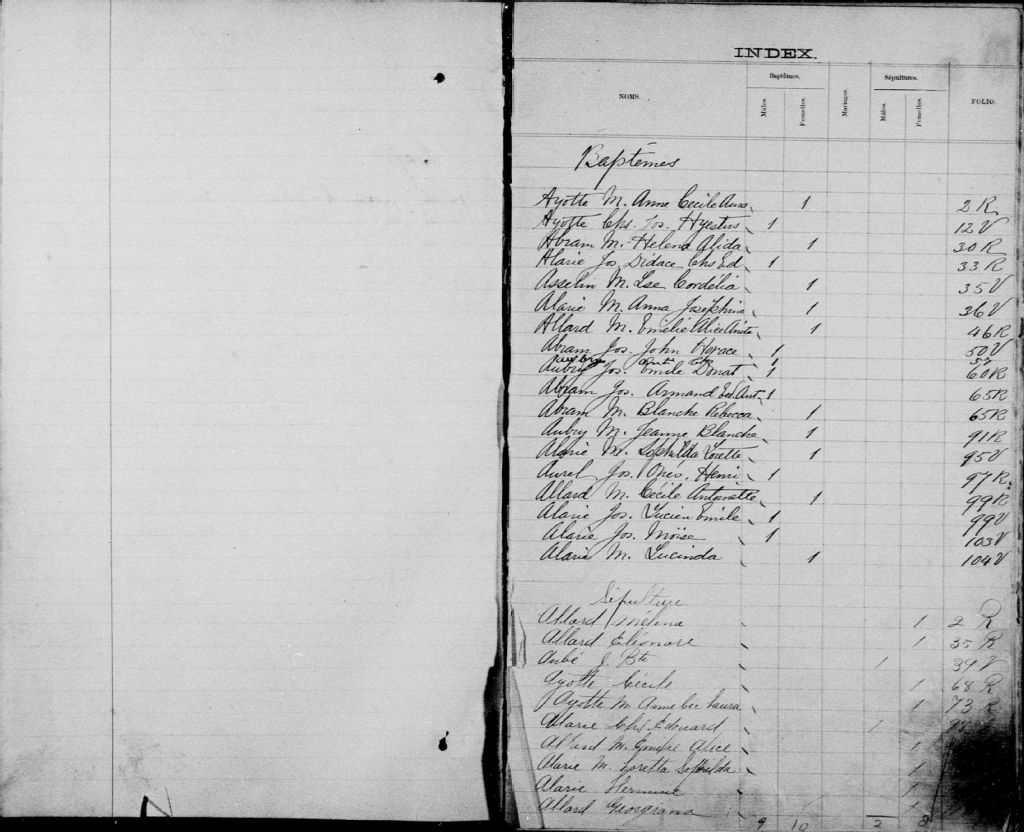 INDEX.
NOMS. Baptêmes. Mâles. Femelles. Mariages. Sépultures. Mâles. Femelles. FOLIO.
Baptêmes
Ayotte M. Anne Cécile Aura 1 2 R
Ayotte Chs. Jos. 1 12 V
Abram M. Helena Alida 1 30 R
Alarie Jos. Didace Chs Ed. 1 33 R
Asselin M. Lse Cordélia 1 35 V
Alarie M. Anna Josephine 1 36 V
Allard M. Emélie Alice Anita 1 46 R
Abram Jos. John Horace 1 50 V
Aubry Jos. Emile Donat 1 60 R
Abram Jos. Armand Ed. Ant. 1 65 R
Abram M. Blanche Rebecca 1 65 R
Aubry M. Jeanne Blanche 1 91 R
Alarie M. Sophilda Lorette 1 95 V
Aurel Jos. Onés. Henri 1 97 R
Allard M. Cécile Antoinette 1 99 R
Alarie Jos. Lucien Emile 1 99 V
Alarie Jos. Moïse 1 103 V
Alarie M. Lucinda 1 104 V
Sépulture
Allard Mélina 1 2 R
Allard Eléonore 1 35 R
Aubé J. Bte 1 39 V
Ayotte Cécile 1 68 R
Ayotte M. Anne Cec Laura 1 73 R
Alarie Chs Edouard 1
Allard M. Emilie Alice 1
Alarie M. Loretta Sophilda 1
Alarie Hermine 1
Allard Georgiana 1
9 10 2 8